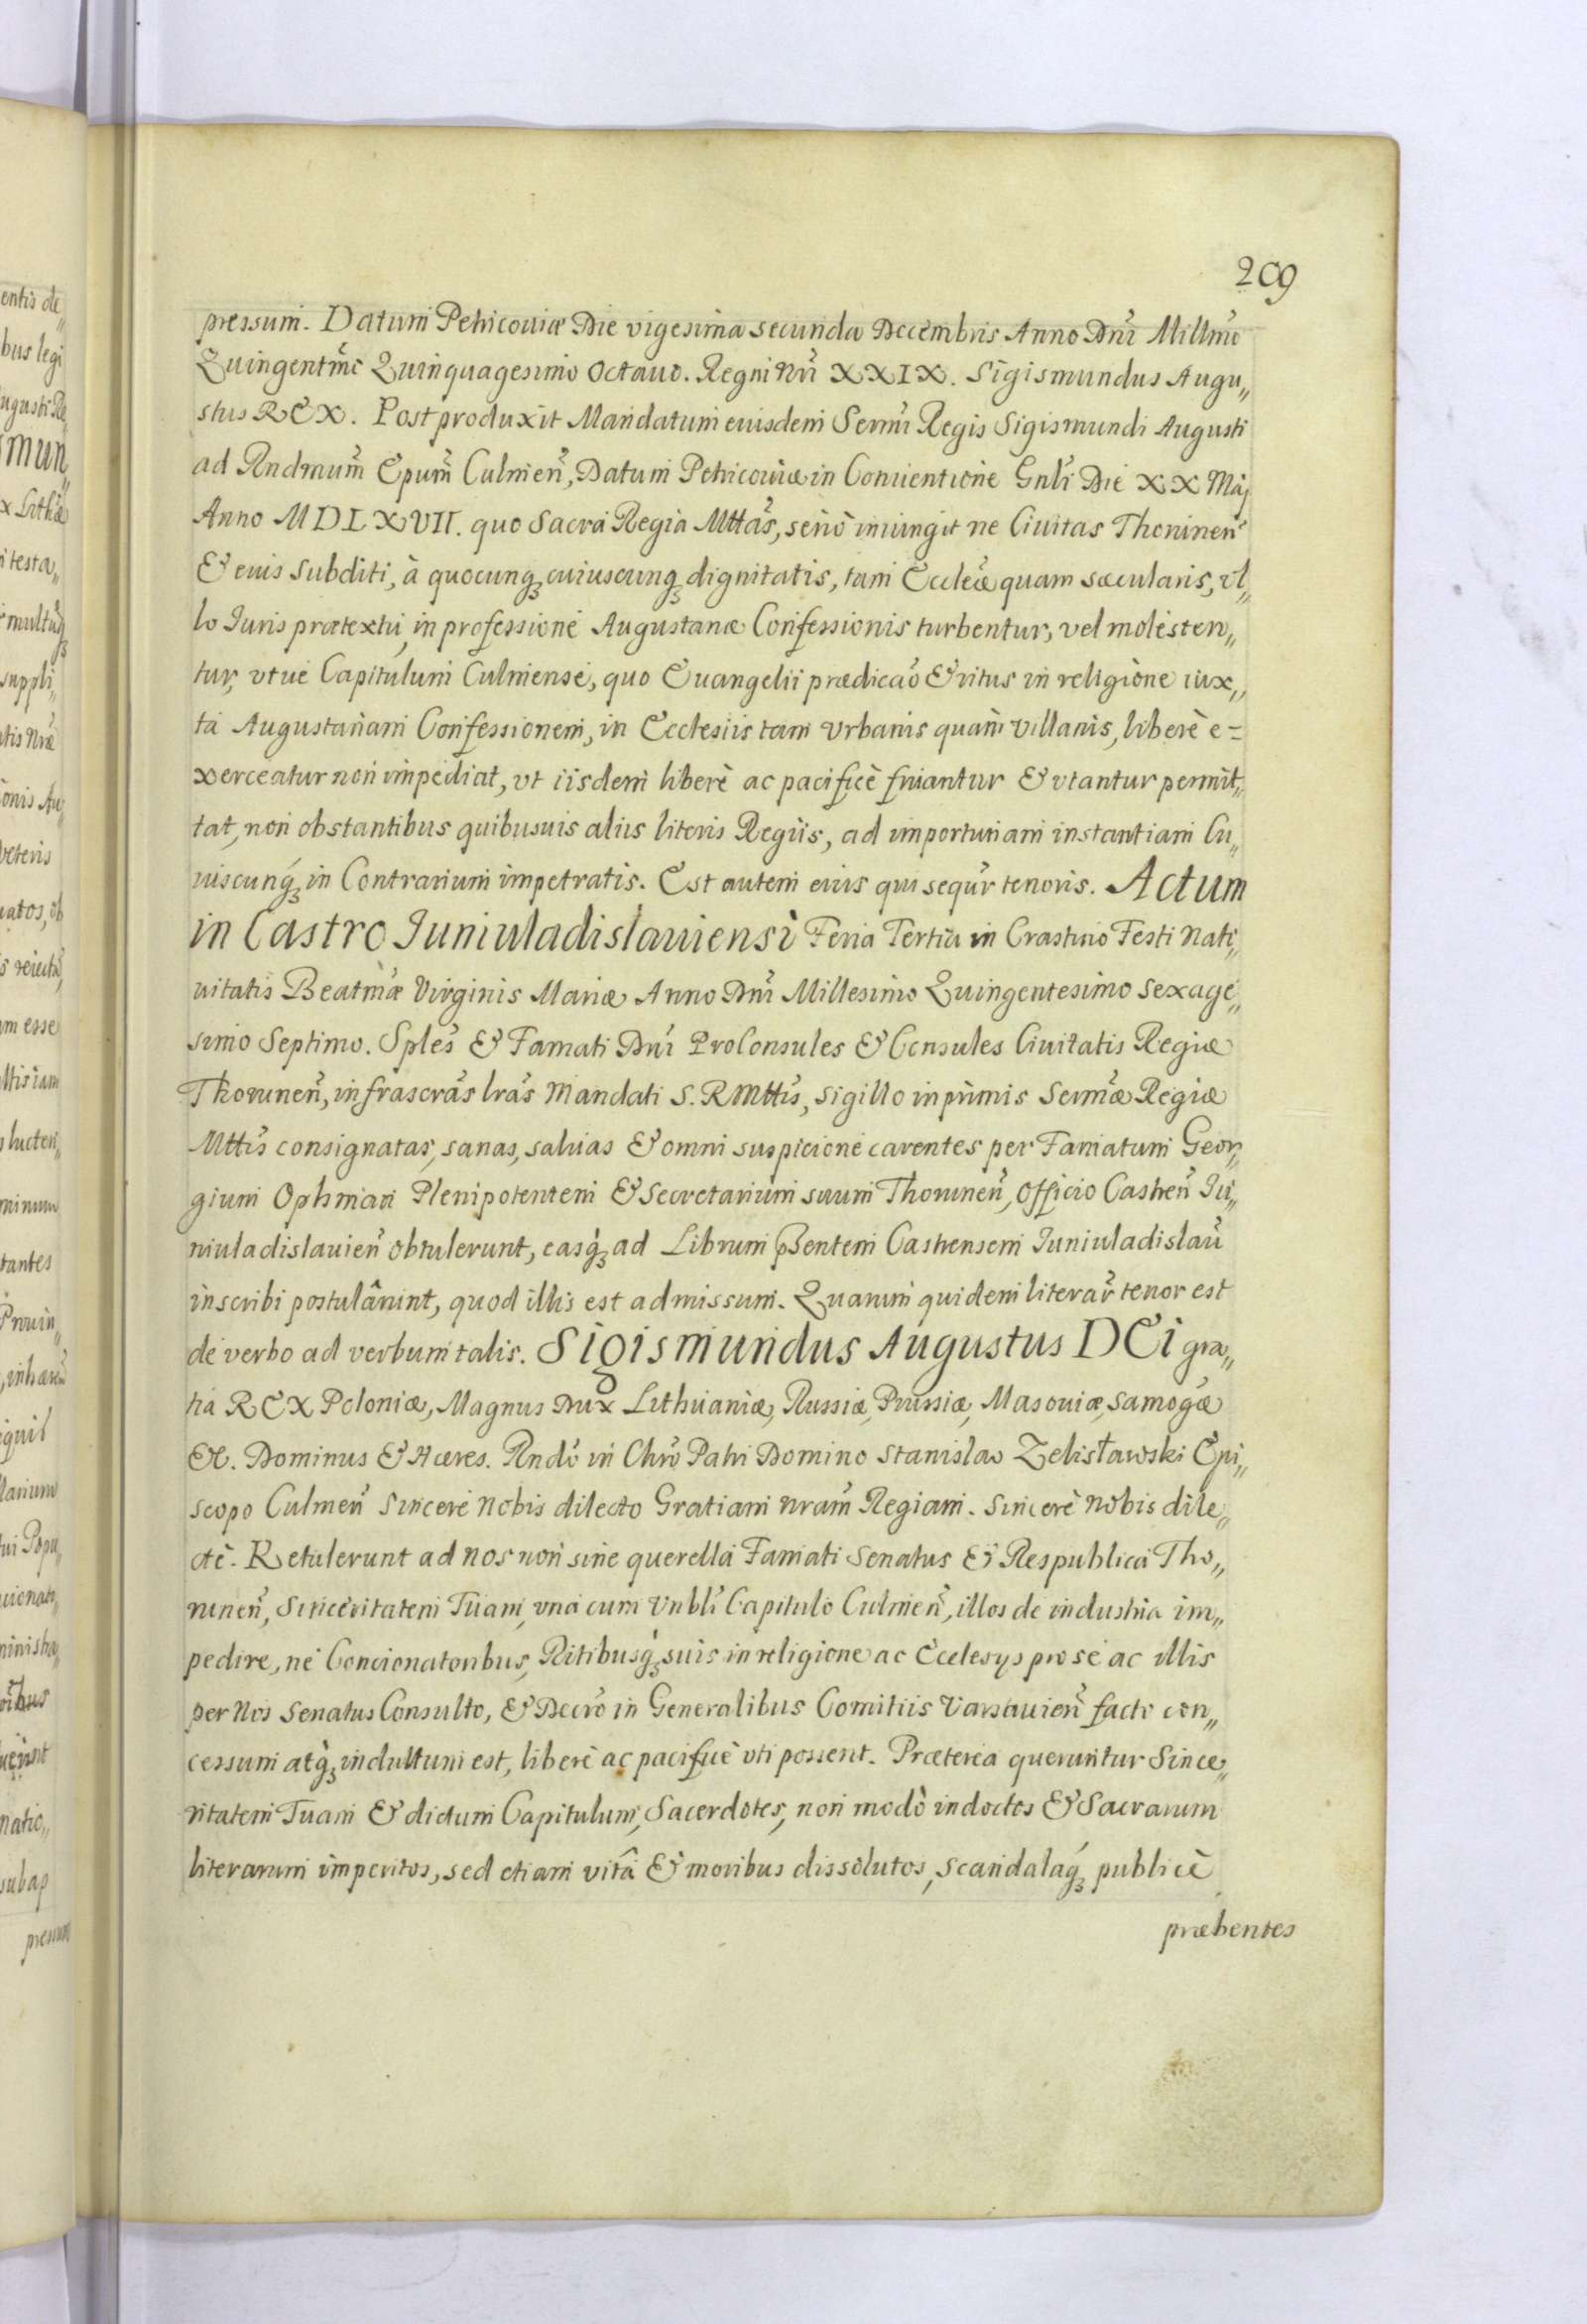 209
pressum. Datum Petricoviæ Die vigesima secunda Decembris Anno Dnĩ Millmõ
Quingentmõ Quinquagesimo Octauo. Regni Nrĩ XXIX. Sigismundus Augu„
stus REX. Post produxit Mandatum eiusdem Sermĩ Regis Sigismundi Augusti
ad Rndmum̃ Epum̃ Culmeñ, Datum Petricouiæ in Conuentione Gnlĩ Die XX Maj
Anno MDLXVII. quo Sacra Regia Mttãs, seriò iniungit ne Ciuitas Thoruneñ
& eius subditi, à quocunq₃ cuiuscunq₃ dignitatis, tam Eccleæ̃ quam sæcularis, vl„
lo Juris prætextu, in professione Augustanæ Confessionis turbentur, vel molesten„
tur, vtue Capitulum Culmense, quo Euangelii prædicaõ & ritus in religione iux„
ta Augustanam Confessionem, in Ecclesiis tam Vrbanis quam Villanis, liberè e=
xerceatur non impediat, vt iisdem liberè ac pacificè fruantur & vtantur permit„
tat, non obstantibus quibusuis aliis literis Regiis, ad importunam instantiam Cu„
iuscunq́₃ in Contrarium impetratis. Est autem eius qui sequr̃ tenoris. Actum
in Castro Juniuladislauiensi Feria Tertia in Crastino Festi Nati„
uitatis Beatmæ̃ Virginis Mariæ Anno Dnĩ Millesimo Quingentesimo sexage„
simo Septimo. Splẽs & Famati Dnĩ ProConsules & Consules Ciuitatis Regiæ
Thoruneñ, infrascrãs lrãs Mandati S. R Mttĩs, sigillo inprimis Sermæ̃ Regiæ
Mttĩs consignatas, sanas, saluas & omni suspicione carentes per Famatum Geor„
gium Ophman Plenipotentem & Secretarium suum Thoruneñ, Officio Castreñ Ju„
niuladislauieñ obtulerunt, easq́₃ ad Librum p̃sentem Castrensem Juniuladislau̇̃
inscribi postulârunt, quod illis est admissum. Quarum quidem literar̃ tenor est
de verbo ad verbum talis. Sigismundus Augustus DEi gra„
tia REX Poloniæ, Magnus Dux Lithuaniæ, Russiæ, Prussiæ, Masouiæ, Samogæ̃
Etc. Dominus & Hæres. Rndõ in Chrõ Patri Domino Stanislao Zelisławski Epi„
scopo Culmeñ Sincere Nobis dilecto Gratiam nram̃ Regiam. Sincerè Nobis dile„
ctè. Retulerunt ad Nos non sine querella Famati Senatus & Respublica Tho„
runeñ, Sinceritatem Tuam, vna cum Vnblĩ Capitulo Culmeñ, illos de industria im„
pedire, ne Concionatoribus, Ritibusq́₃ suis in religione ac Ecclesys pro se ac illis
per Nos Senatus Consulto, & Decrõ in Generalibus Comitiis Varsauieñ facto con„
cessum atq́₃ indultum est, liberè ac pacificè vti possent. Præterea queruntur Since„
ritatem Tuam & dictum Capitulum, Sacerdotes, non modò indoctos & Sacrarum
literarum imperitos, sed etiam vitâ & moribus dissolutos, scandalaq́₃ publicè
præbentes